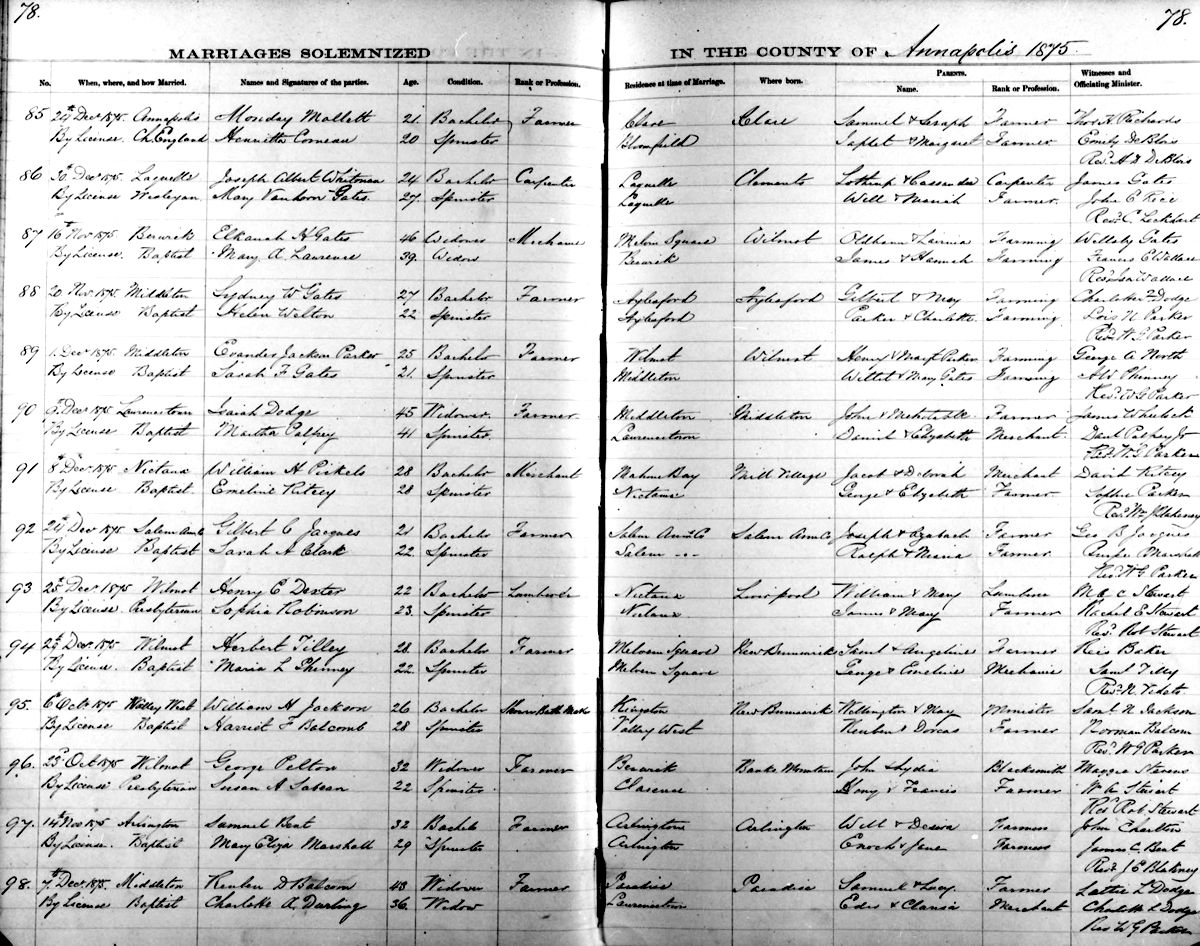 78.
78.
MARRIAGES SOLEMNIZED IN THE COUNTY OF Annapolis 1875
No. When, where, and how Married. Names and Signatures of the parties. Age. Condition. Rank or Profession. Residence at time of Marriage. Where born. PARENTS. Name. Rank or Profession. Witnesses and Officiating Minister.
85 24th Decr 1875 Annapolis Monday Mollett 21. Bachelor Farmer Clare Clare Samuel & Farmer Thos. A. Richards
By License Ch. England Henrietta Comeau 20 Spinster Bloomfield & Margaret Farmer Emily DeBlois
Revd. H. D. DeBlois
86 Decr 1875 Laquille Joseph Albert Whitman 24 Bachelor Carpenter Laquille Clements Lothrup & Cassander Carpenter James Gates
By License Wesleyan Mary Vanhorn Gates 27. Spinster Laquille Will & Mariah Farmer. John C Rice
Revd. C. Lockhart
87 16th Nov 1875 Berwick Elkanah H Gates 46 Widower Mechanic Melvern Square Wilmot Oldham & Lavinia Farming Willoby Gates
By License. Baptist Mary A. Lawrence 39. Widow Berwick James & Hannah Farming Francis E Wallace
Revd. Isa Wallace
88 20 Nov 1875 Middleton Sydney W Gates 27 Bachelor Farmer Aylesford Aylesford Gilbert & May Farming Charlotte Dodge
By License Baptist Helen Welton 22 Spinster Aylesford Parker & Charlotte. Farming Lois N Parker
Revd. W. G. Parker
89 1. Decr 1875 Middleton Evander Jackson Parker 25 Bachelor Farmer Wilmot Wilmot Henry & Mary Parker Farming George A North
By License Baptist Sarah F Gates 21. Spinster Middleton Willet & Mary Gates Farming Phinney
Revd. W G Parker
90 Decr 1875 Lawrencetown Isaiah Dodge 45 Widower. Farmer Middleton Middleton John & Mehitable Farmer James Wheelock
By License Baptist Martha Palfrey 41 Spinster. Lawrencetown Daniel & Elizabeth Merchant Danl Palfrey Jr
Revd. W. G. Parker
91 8th Decr 1875 Nictaux William H Pickels 28 Bachelor Merchant Mahone Bay Mill Village Jacob & Deborah Merchant David Ritcey
By License. Baptist Emeline Ritcey 28 Spinster Nictaux George & Elizabeth Farmer Sophie Parker
Revd. Wm J Blakeney
92 24th Decr 1875 Salem Gilbert C Jacques 21 Bachelor Farmer Salem Ann. Co Salem Ann Co, Joseph & Farmer Geo B Jacques
By License Baptist Sarah A Clark 22 Spinster Salem Ralph & Maria Farmer Marshall
Revd. W G Parker
93 25th Decr 1875 Wilmot Henry C Dexter 22 Bachelor Nictaux Liverpool William & Mary Lumberer M C Stewart
By License. Presbyterian Sophia Robinson 23. Spinster Nictaux James & Mary Farmer Rachel E Stewart
Revd. Rob Stewart
94 29th Decr 1875 Wilmot Herbert Tilley 28. Bachelor Farmer Melvern Square New Brunswick Saml & Angeline Farmer Reis Baker
By License. Baptist Maria L Phinney 22 Spinster Melvern Square George & Emeline Mechanic Saml Tilly
Revd. N. Vidito
95. 6th Octr 1875 Valley West William H Jackson 26 Bachelor Kingston New Brunswick Wellington & May Minister Saml N Jackson
By License Baptist Harriet F Balcomb 28 Spinster Valley West Reuben & Dorcas Farmer Norman Balcom
Revd. W G Parker
96. 23rd Oct 1875 Wilmot George Pelton 32 Widower Farmer Berwick Banks Mountain John & Lydia Blacksmith Maggie Stevens
By License. Presbyterian Susan A Sabean 22. Spinster Clarence & Francis Farmer W. A. Stewart
Revd. Rob Stewart
97. 14th Nov 1875 Arlington Samuel Bent 32 Bachelor Farmer Arlington Arlington Will & Desira Farmers John Charlton
By License. Baptist Mary Eliza Marshall 29 Spinster Arlington Enoch & Jane Farmers James C. Bent
Revd. J. C Blakeney
98. 7th Decr 1875. Middleton Reuben D Balcom 43 Widower Farmer Paradise Paradise Samuel & Lucy. Farmer Lottie L Dodge
By License Baptist Charlotte A. Durling 36. Widow Lawrencetown & Clarisa Merchant Charlotte L Dodge
Revd W G Parker